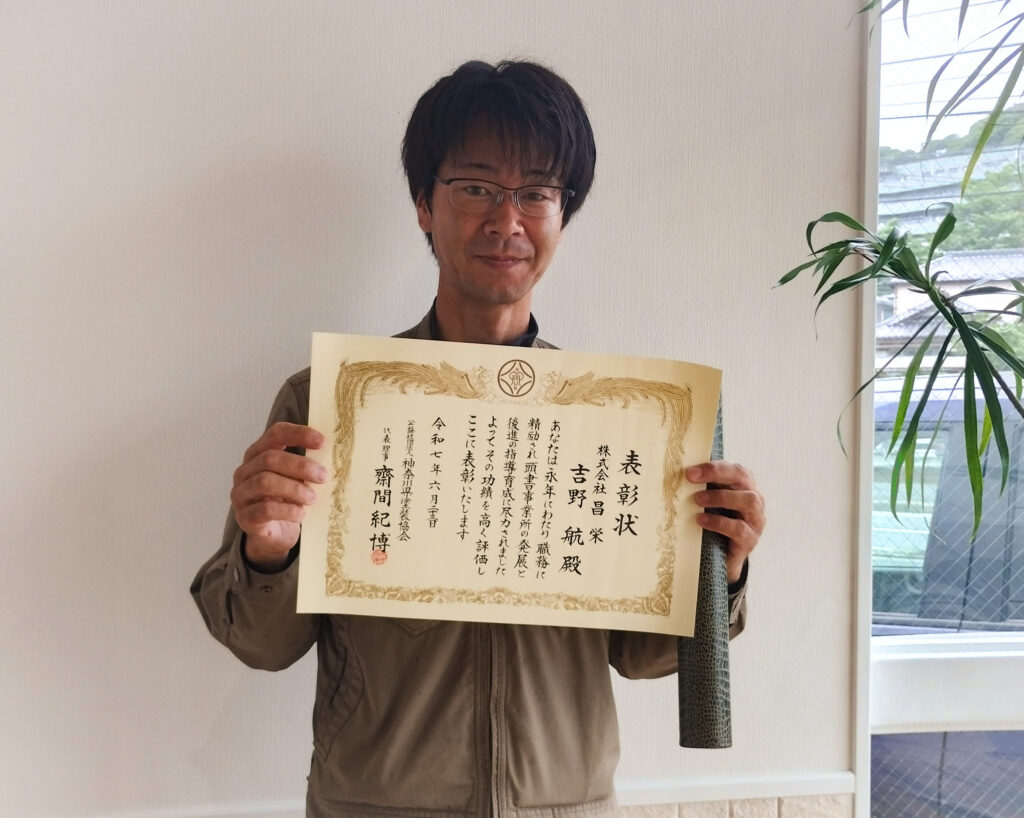 表彰状
株式会社 昌栄
吉野 航 殿
あなたは永年にわたり職務に
精励され頭書事業所の発展と
後進の指導育成に尽力されました
よってその功績を高く評価し
ここに表彰いたします
令和七年六月二十三日
公益社団法人 神奈川県塗装協会
代表理事 齋間紀博